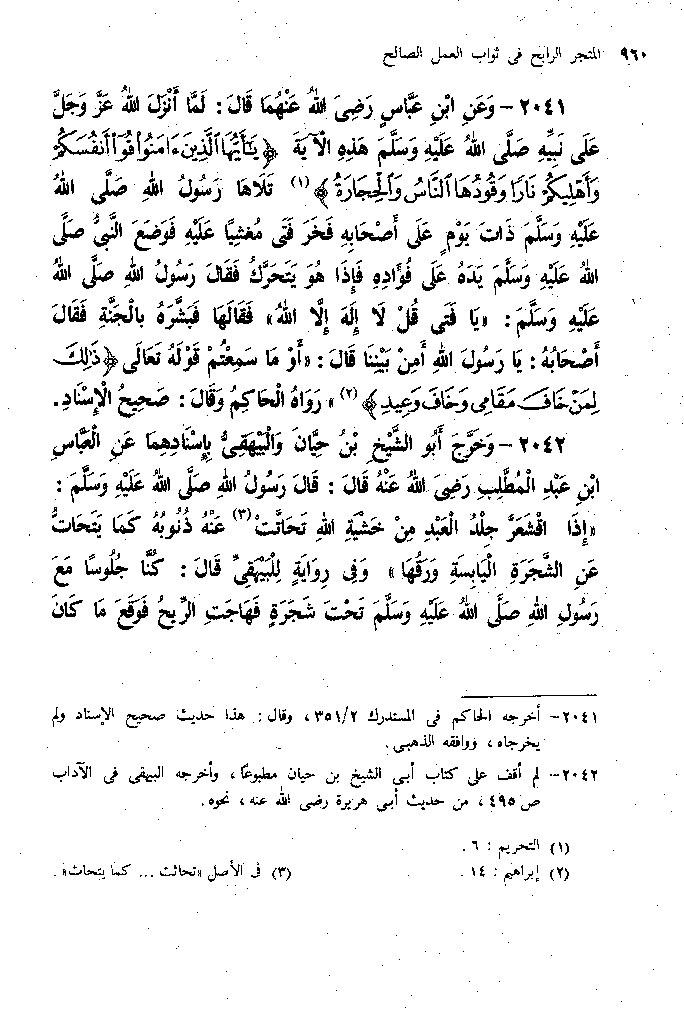 ٩٦٠ المتجر الرابح فى ثواب العمل الصالح
٢٠٤١ - وَعَنِ ابْنِ عَبَّاسٍ رَضِىَ اللهُ عَنْهُمَا قَالَ : لَمَّا أَنْزَلَ اللهُ عَزَّ وَجَلَّ
عَلَى نَبِيِّهِ صَلَّى اللهُ عَلَيْهِ وَسَلَّمَ هَذِهِ الْآيَةَ ﴿ يَٰٓأَيُّهَا الَّذِينَ ءَامَنُوا۟ قُوٓا۟ أَنفُسَكُمْ
وَأَهْلِيكُمْ نَارًا وَقُودُهَا النَّاسُ وَالْحِجَارَةُ ﴾ (١) تَلَاهَا رَسُولُ اللهِ صَلَّى اللهُ
عَلَيْهِ وَسَلَّمَ ذَاتَ يَوْمٍ عَلَى أَصْحَابِهِ فَخَرَّ فَتًى مُغْشِيًّا عَلَيْهِ فَوَضَعَ النَّبِىُّ صَلَّى
اللهُ عَلَيْهِ وَسَلَّمَ يَدَهُ عَلَى فُؤَادِهِ فَإِذَا هُوَ يَتَحَرَّكُ فَقَالَ رَسُولُ اللهِ صَلَّى اللهُ
عَلَيْهِ وَسَلَّمَ : «يَا فَتَى قُلْ لَا إِلَهَ إِلَّا اللهُ» فَقَالَهَا فَبَشَّرَهُ بِالْجَنَّةِ فَقَالَ
أَصْحَابُهُ : يَا رَسُولَ اللهِ أَمِنْ بَيْنِنَا قَالَ : «أَوْ مَا سَمِعْتُمْ قَوْلَهُ تَعَالَى ﴿ ذَٰلِكَ
لِمَنْ خَافَ مَقَامِى وَخَافَ وَعِيدِ ﴾ (٢) » رَوَاهُ الْحَاكِمُ وَقَالَ : صَحِيحُ الْإِسْنَادِ.
٢٠٤٢ - وَخَرَّجَ أَبُو الشَّيْخِ بْنُ حِيَّانَ وَالْبَيْهَقِىُّ بِإِسْنَادِهِمَا عَنِ الْعَبَّاسِ
ابْنِ عَبْدِ الْمُطَّلِبِ رَضِىَ اللهُ عَنْهُ قَالَ : قَالَ رَسُولُ اللهِ صَلَّى اللهُ عَلَيْهِ وَسَلَّمَ :
«إِذَا اقْشَعَرَّ جِلْدُ الْعَبْدِ مِنْ خَشْيَةِ اللهِ تَحَاتَّتْ (٣) عَنْهُ ذُنُوبُهُ كَمَا يَتَحَاتُّ
عَنِ الشَّجَرَةِ الْيَابِسَةِ وَرَقُهَا» وَفِى رِوَايَةٍ لِلْبَيْهَقِىِّ قَالَ : كُنَّا جُلُوسًا مَعَ
رَسُولِ اللهِ صَلَّى اللهُ عَلَيْهِ وَسَلَّمَ تَحْتَ شَجَرَةٍ فَهَاجَتِ الرِّيحُ فَوَقَعَ مَا كَانَ
٢٠٤١ - أخرجه الحاكم فى المستدرك ٣٥١/٢ ، وقال : هذا حديث صحيح الإسناد ولم
يخرجاه ، ووافقه الذهبى .
٢٠٤٢ - لم أقف على كتاب أبى الشيخ بن حيان مطبوعًا ، وأخرجه البيهقى فى الآداب
ص ٤٩٥ ، من حديث أبى هريرة رضى الله عنه ، نحوه .
(١) التحريم : ٦ .
(٢) إبراهيم : ١٤ . (٣) فى الأصل «تحاثت ... كما يتحاث» .